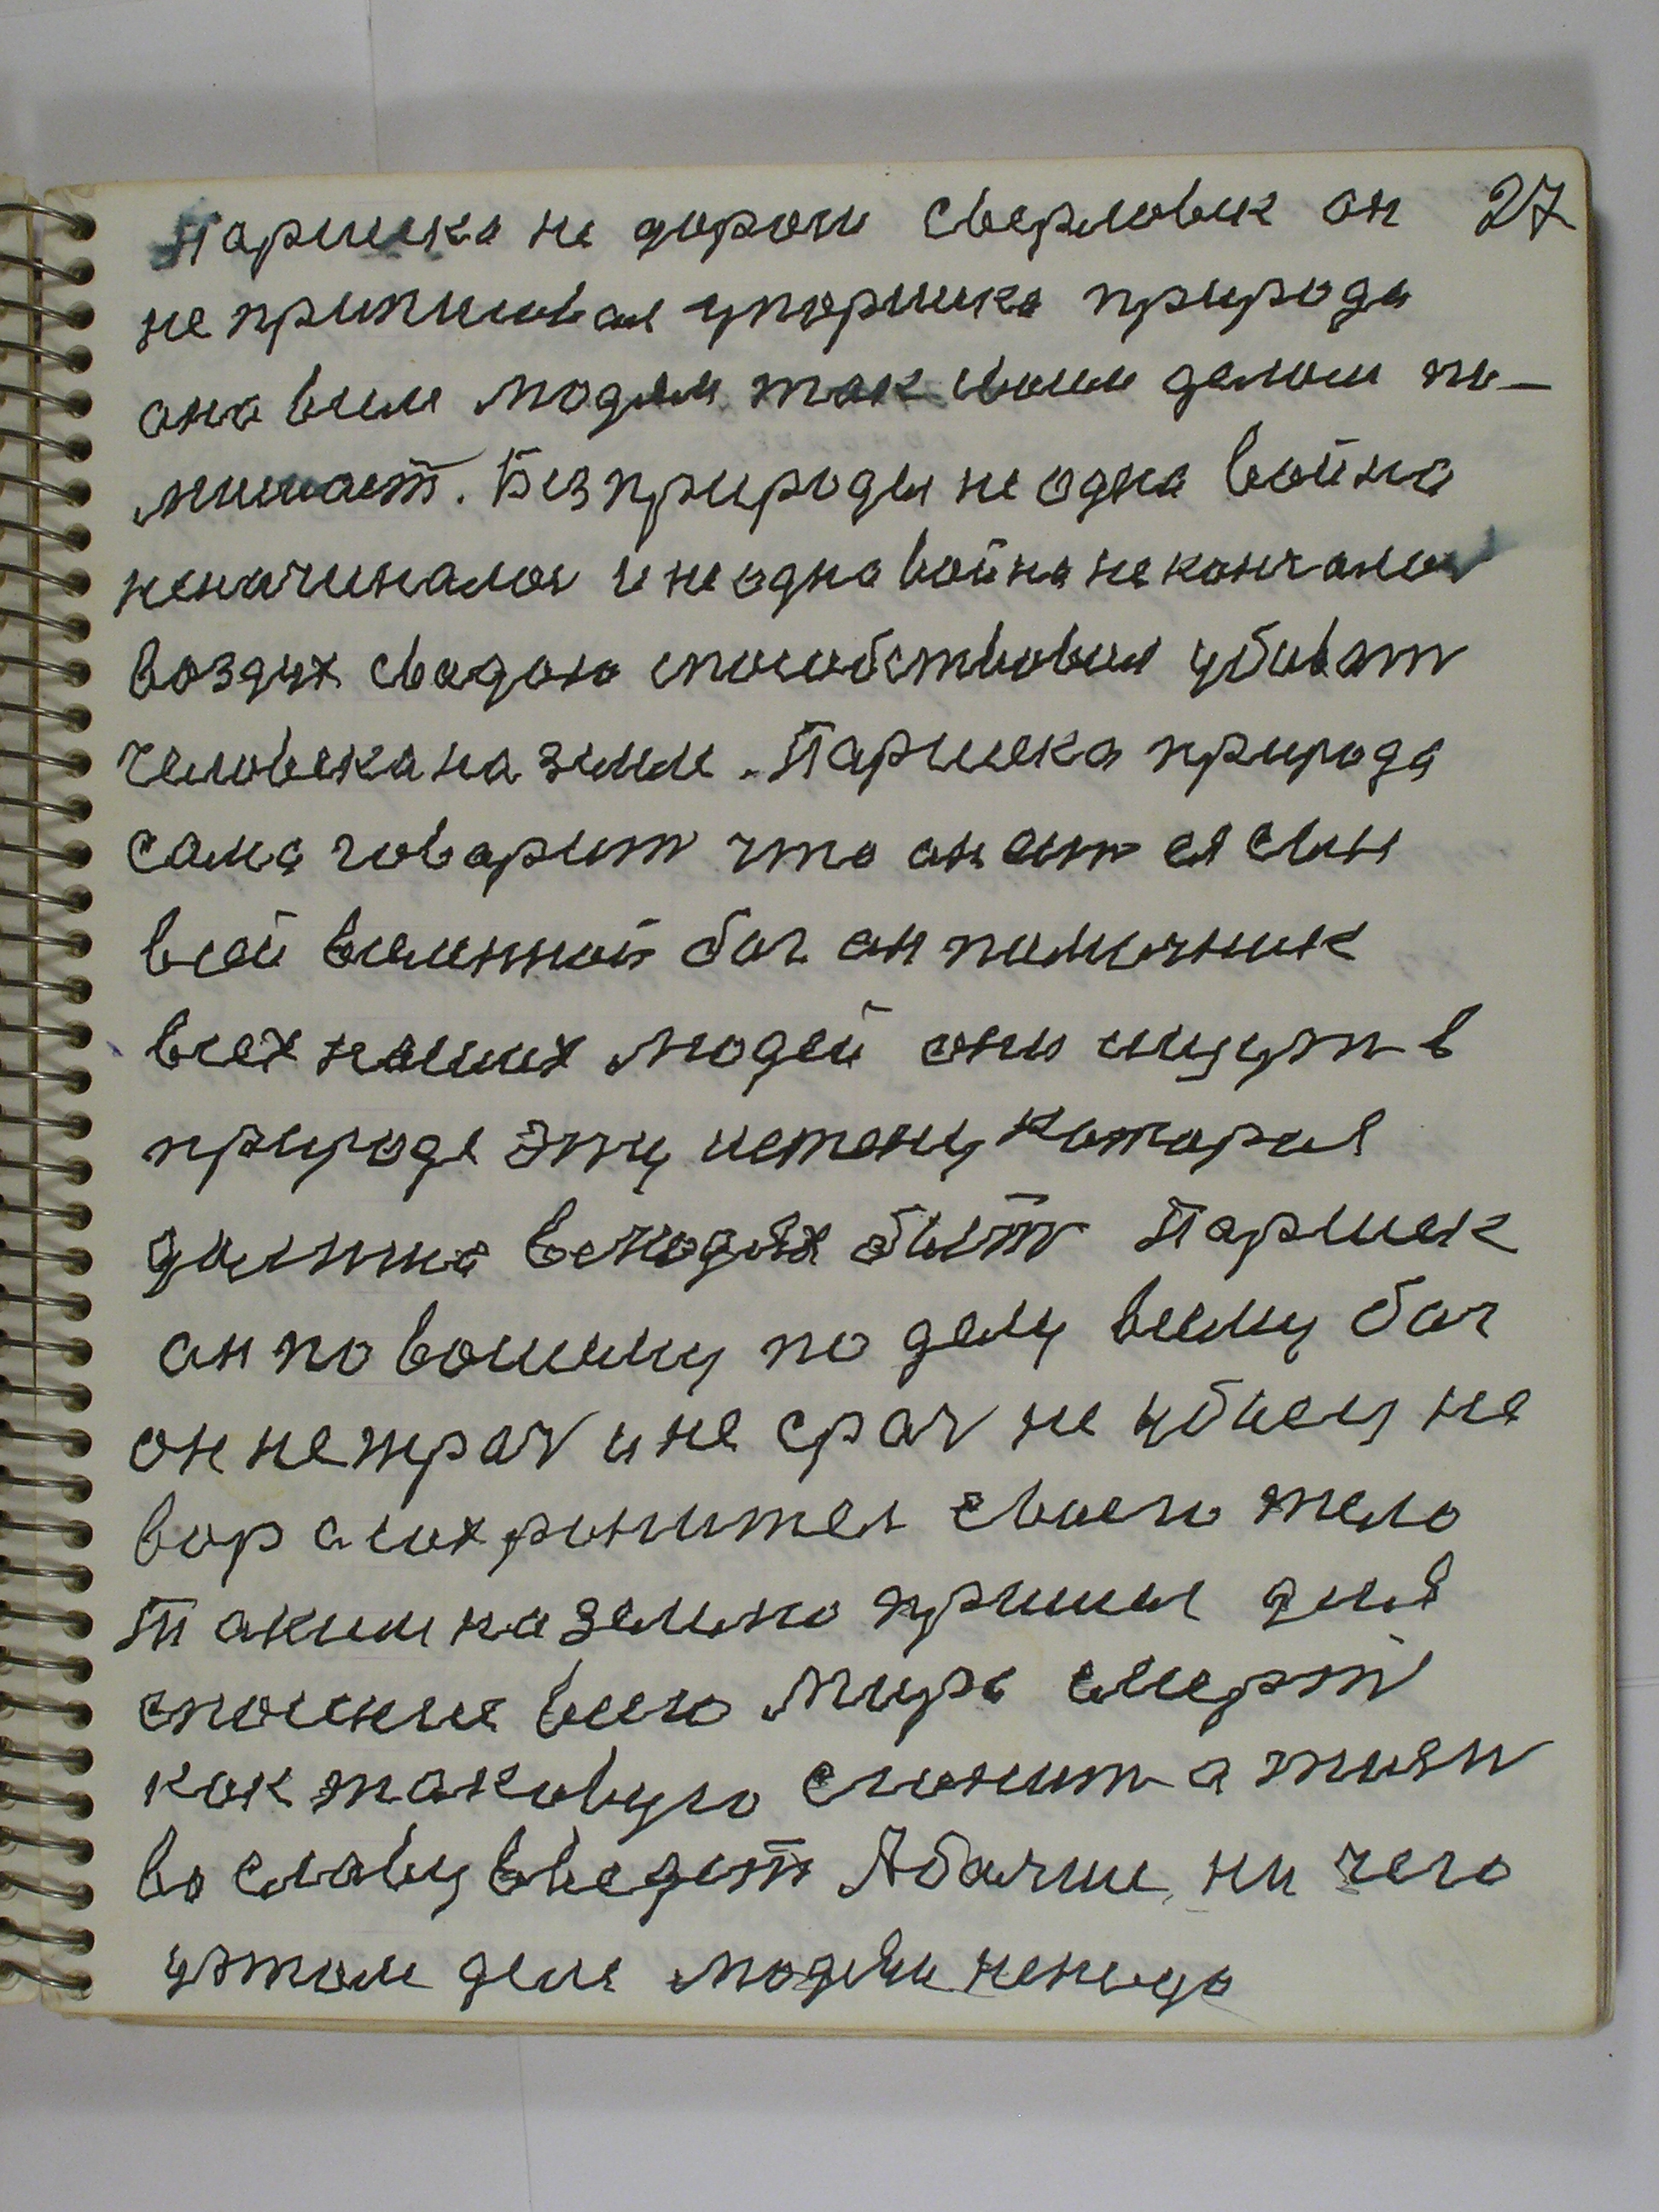 Паршека не дороги сверловек он 27
не приписывал упаршика природа
она всем людям так своим делом по-
могает. Без природы не одна война
неначиналос и не одна война не кончалось
воздух сводою способствовал убиват
человека на земле. Паршека природа
сама говарит что он ест ея сын
всей вселенной бог он помочник
всех наших людей они ищут в
природе эту истену которая
должна в людях быть Паршек
он по вашему по делу всему бог
он не враг и не срач не убиец не
вор а сохронител своего тело
таким на землю пришел для
спасения всего мира смерть
как таковую сгонит а жизн
во славу введёт А болше ни чего
у этом деле людям не надо